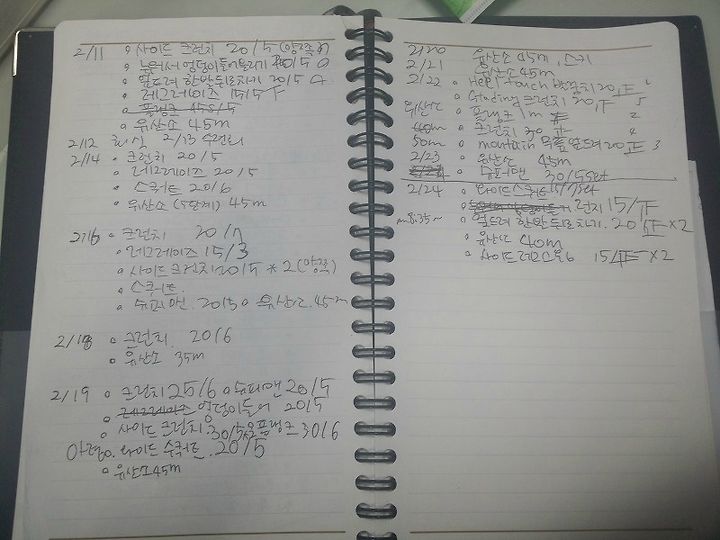 2/11 ◦ 사이드 크런치 20/5 (양쪽)
◦ 누워서 엉덩이들어올리기 20/5
◦ 엎드려 한발뒤로차기 20/5
◦ 레그레이즈 15/5
◦ 플랭크 45S/5
◦ 유산소 45m
2/12 회식 2/13
2/14 ◦ 크런치 20/5
◦ 레그레이즈 20/5
◦ 스쿼트 20/6
◦ 유산소 (5단계) 45m
2/16 ◦ 크런치 20/7
◦ 레그레이즈 15/3
◦ 사이드 크런치 20/5 * 2 (양쪽)
◦ 스쿼트
◦ 슈퍼맨. 20/3 ◦ 유산소. 45m
2/18 ◦ 크런치. 20/6
◦ 유산소 35m
2/19 ◦ 크런치 25/6 ◦ 슈퍼맨 20/5
◦ 레그레이즈 엉덩이들어 20/5
◦ 사이드 크런치. 30/5 플랭크 30/6
아령. 와이드 스쿼트. 20/5
◦ 유산소 45m
2/20 유산소 45m, 스키
2/21 유산소 45m
2/22 ◦ Heel touch 20,
◦ 크런치 20,
유산소 ◦ 플랭크 1m 2
40m ◦ 크런치 30 4
50m ◦ mountain 20 3
2/23 ◦ 유산소 45m
◦ 슈퍼맨 30/5set
2/24 ◦ 와이드스쿼트 15/7set
◦ 런지 15/
◦ 엎드려 한발뒤로차기. 20/ ×2
◦ 유산소 40m
◦ 사이드 15/ ×2